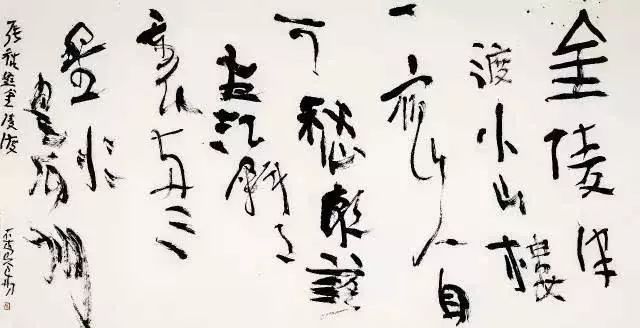 金陵津
渡小山楼
一宿行人自
可愁潮落
夜江斜月
里两三
星火
是瓜洲
张祜题金陵渡